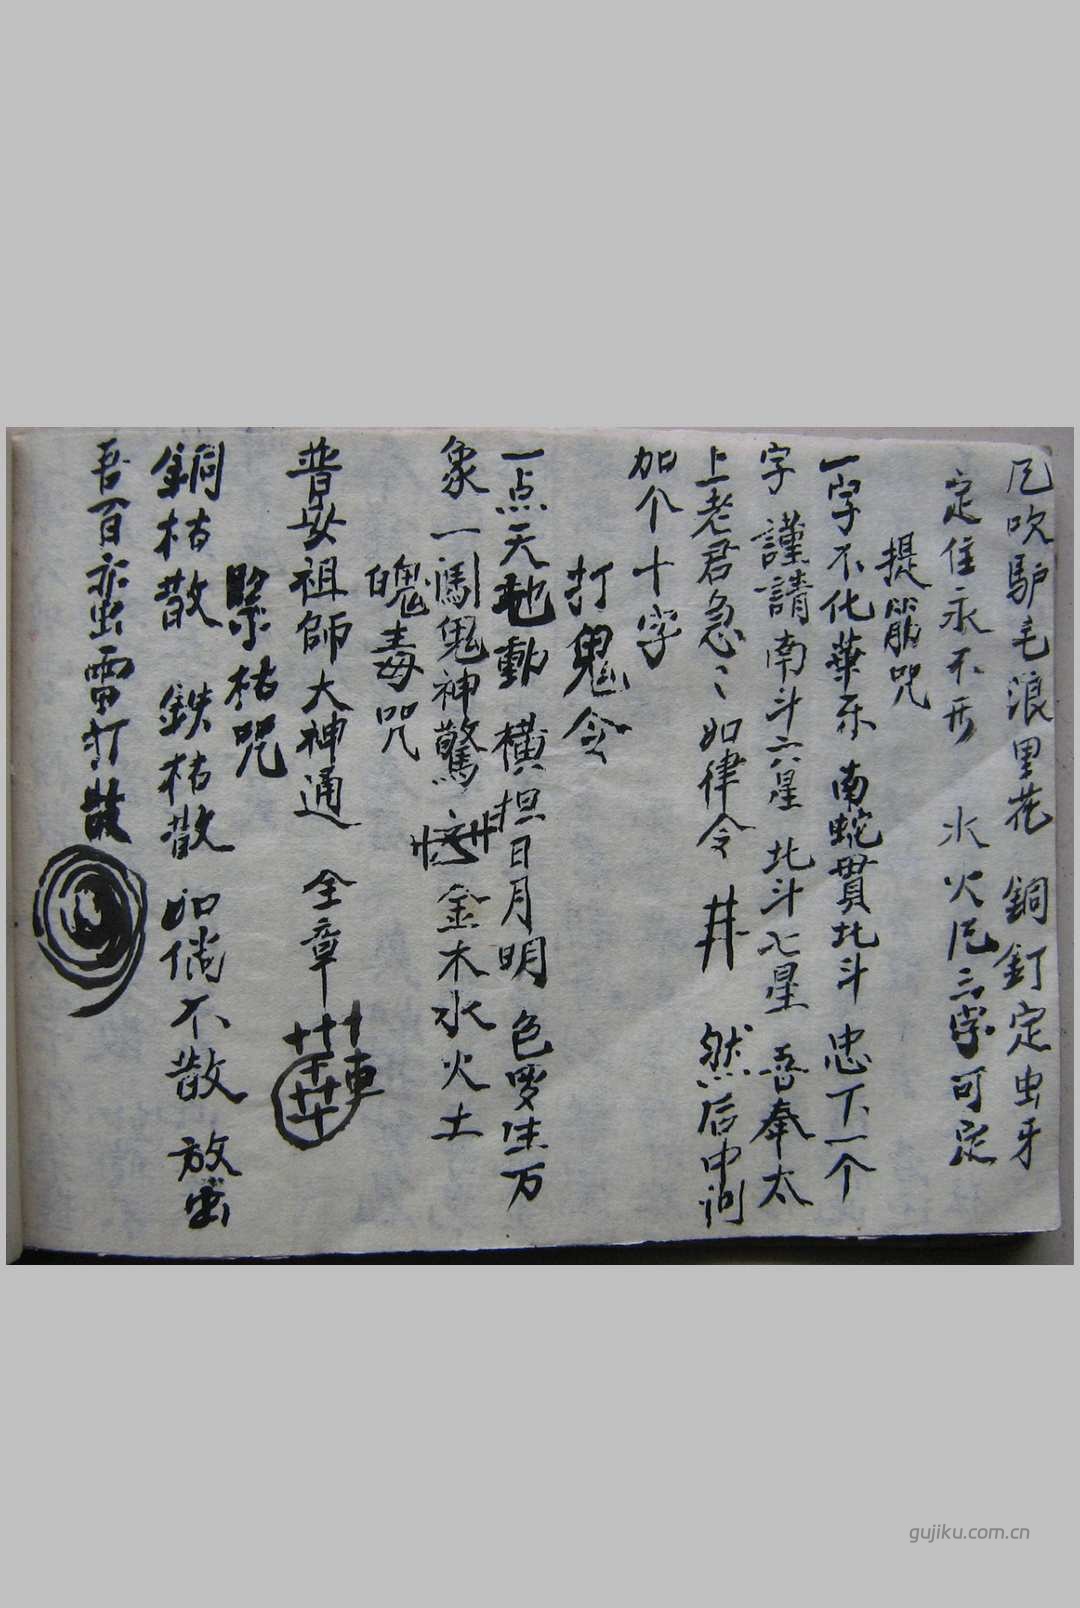 吹驴毛浪里花 銅釘定虫牙
定住永不 水火三字可定
提筋咒
一字不化華 南蛇貫北斗 忠下一个
字 謹請南斗六星 北斗七星 吾奉太
上老君急〻如律令 井 然后中间
加个十字
打鬼令
一点天地動 橫担日月明 色罗生万
象 一闖鬼神驚 金木水火土
毒咒
普安祖師大神通 全章
緊枯咒
銅枯散 鉄枯散 如倘不散 放
吾百 雷打散
gujiku.com.cn